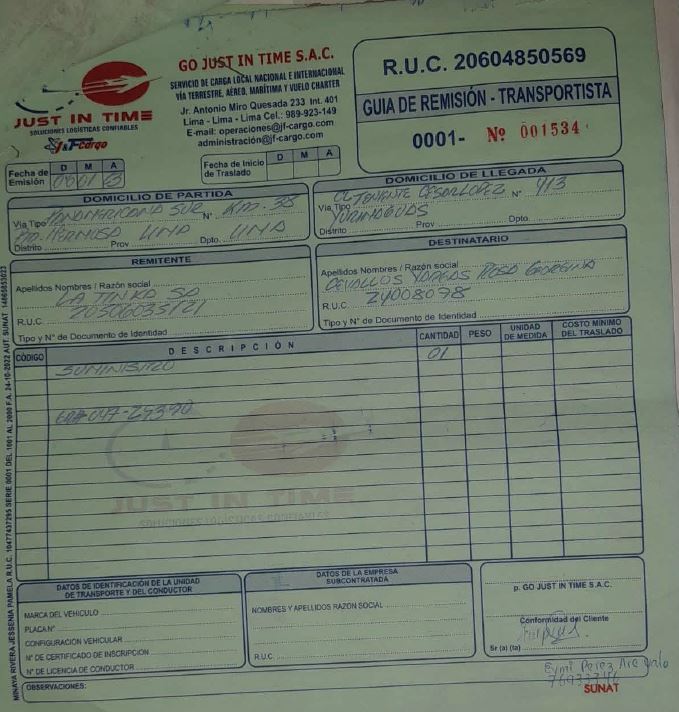 JUST IN TIME
SOLUCIONES LOGÍSTICAS CONFIABLES
J&F cargo
GO JUST IN TIME S.A.C.
SERVICIO DE CARGA LOCAL NACIONAL E INTERNACIONAL
VÍA TERRESTRE, AÉREO, MARÍTIMA Y VUELO CHARTER
Jr. Antonio Miro Quesada 233 Int. 401
Lima - Lima - Lima Cel.: 989-923-149
E-mail: operaciones@jf-cargo.com
administración@jf-cargo.com
R.U.C. 20604850569
GUIA DE REMISIÓN - TRANSPORTISTA
0001- Nº 001534
Fecha de Emisión D M A
Fecha de Inicio de Traslado D M A
DOMICILIO DE PARTIDA
Via Tipo PANAMERICANA SUR N° Km. 38
Distrito Prov LIMA Dpto. LIMA
DOMICILIO DE LLEGADA
Via Tipo N° 413
Distrito Prov. Dpto.
REMITENTE
Apellidos Nombres / Razón social
LA TINKA SA
R.U.C. 20506035121
Tipo y N° de Documento de Identidad
DESTINATARIO
Apellidos Nombres / Razón social
CEVALLOS VARGAS ROSA GEORGINA
R.U.C. 24008098
Tipo y N° de Documento de Identidad
CÓDIGO DESCRIPCIÓN CANTIDAD PESO UNIDAD DE MEDIDA COSTO MÍNIMO DEL TRASLADO
SUMINISTRO 01
047-29390
JUST IN TIME
SOLUCIONES LOGÍSTICAS CONFIABLES
DATOS DE IDENTIFICACIÓN DE LA UNIDAD DE TRANSPORTE Y DEL CONDUCTOR
MARCA DEL VEHICULO
PLACA N°
CONFIGURACIÓN VEHICULAR
N° DE CERTIFICADO DE INSCRIPCIÓN
N° DE LICENCIA DE CONDUCTOR
DATOS DE LA EMPRESA SUBCONTRATADA
NOMBRES Y APELLIDOS RAZON SOCIAL
R.U.C.
p. GO JUST IN TIME S.A.C.
Conformidad del Cliente
Sr (a) (ta)
Perez Arevalo
SUNAT
OBSERVACIONES:
MINAYA RIVERA JESSENIA PAMELA R.U.C. 10477437295 SERIE 0001 DEL 1001 AL 2000 F.A. 24-10-2022 AUT. SUNAT